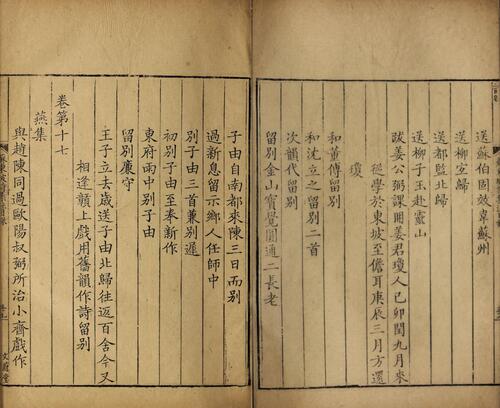 送蘇伯固效韋蘇州
送柳宜歸
送都監北歸
送柳子玉赴靈山
跋姜公弼課冊姜君瓊人己卯閏九月來
從學於東坡至儋耳庚辰三月方還
瓊
和董傳留別
和沈立之留別二首
次韻代留別
留別金山寶覺圓通二長老
子由自南都來陳三日而別
過新息留示鄉人任師中
別子由三首兼別遲
初別子由至奉新作
東府雨中別子由
留別廉守
王子立去歲送子由北歸往返百舍今又
相逢贛上戲用舊韻作詩留別
卷第十七
燕集
與趙陳同過歐陽叔弼所治小齋戲作
文蔚堂